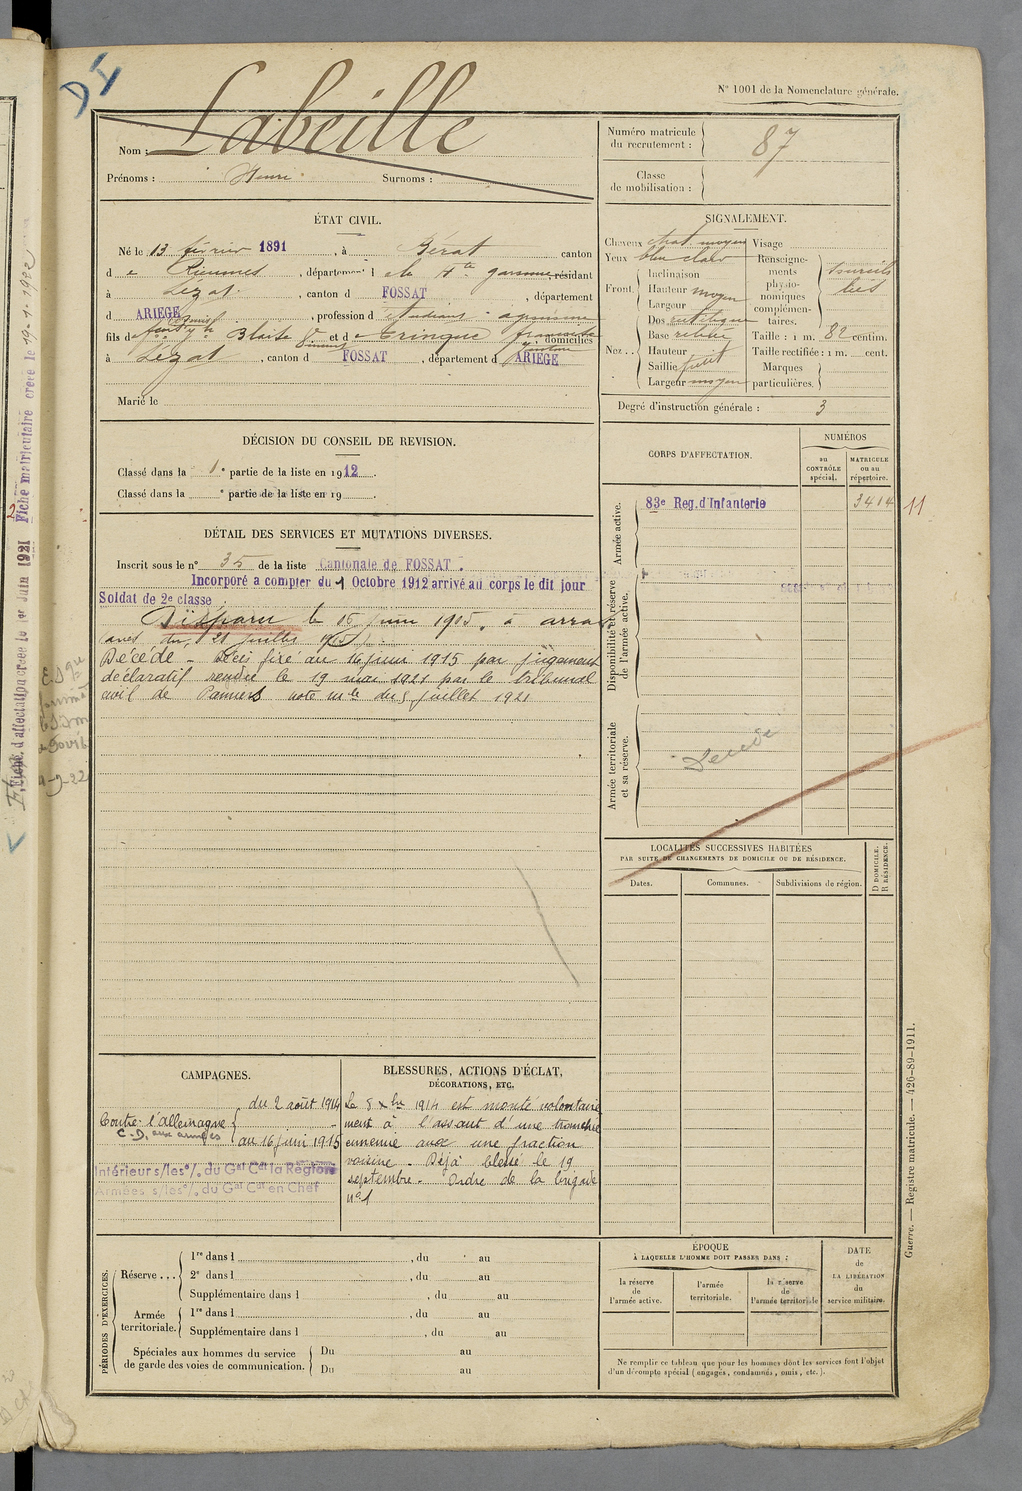 DI
N° 1001 de la Nomenclature générale.
Nom : Labeille
Prénoms : Henri Surnoms :
Numéro matricule du recrutement : 87
Classe de mobilisation :
ÉTAT CIVIL.
Né le 13 février 1891, à Bérat canton
d e Rieumes, département d e la Hte garonne, résidant
à Lézat, canton d FOSSAT, département
d ARIEGE, profession d
fils de Blaise et d e Tringue domiciliés
à Lézat, canton d FOSSAT, département d ARIEGE
Marié le
SIGNALEMENT.
Cheveux chat. moyen
Yeux bleu clair
Front.
Inclinaison
Hauteur moyen
Largeur
Nez..
Dos rectiligne
Base
Hauteur
Saillie petit
Largeur moyen
Visage
Renseignements physionomiques complémentaires. sourcils liés
Taille : 1 m. 82 centim.
Taille rectifiée : 1 m. cent.
Marques particulières.
Degré d'instruction générale : 3
DÉCISION DU CONSEIL DE REVISION.
Classé dans la 1e partie de la liste en 1912.
Classé dans la e partie de la liste en 19 .
CORPS D'AFFECTATION.
NUMÉROS
au CONTRÔLE spécial.
MATRICULE ou au répertoire.
Armée active.
83e Reg. d'Infanterie 3414
11
Disponibilité et réserve de l'armée active.
Armée territoriale et sa réserve.
DÉTAIL DES SERVICES ET MUTATIONS DIVERSES.
Inscrit sous le n° 35 de la liste Cantonale de FOSSAT.
Incorporé a compter du 1 Octobre 1912 arrivé au corps le dit jour
Soldat de 2e classe
Disparu le 16 juin 1915 à arras
avis du 21 juillet 1915
Décédé - Décès fixé au 16 juin 1915 par jugement
déclaratif rendu le 19 mai 1921 par le tribunal
civil de Pamiers note mlle du 5 juillet 1921
LOCALITÉS SUCCESSIVES HABITÉES
PAR SUITE DE CHANGEMENTS DE DOMICILE OU DE RÉSIDENCE.
Dates. Communes. Subdivisions de région. D DOMICILE. R RÉSIDENCE.
CAMPAGNES.
Contre l'allemagne
C.D. aux armées
du 2 août 1914
au 16 juin 1915
Intérieur s/les o/. du Gal Ct la Région
Armées s/les o/. du Gal Ct en Chef
BLESSURES, ACTIONS D'ÉCLAT,
DÉCORATIONS, ETC.
Le 8 xbre 1914 est monté volontaire
ment à l'assaut d'une tranchée
ennemie avec une fraction
voisine - Déjà blessé le 19
septembre - Ordre de la brigade
n° 1
PÉRIODES D'EXERCICES.
Réserve ...
1re dans l , du au
2e dans l , du au
Supplémentaire dans l , du au
Armée territoriale.
1re dans l , du au
Supplémentaire dans l , du au
Spéciales aux hommes du service de garde des voies de communication.
Du au
Du au
ÉPOQUE
À LAQUELLE L'HOMME DOIT PASSER DANS :
la réserve de l'armée active.
l'armée territoriale.
la réserve de l'armée territoriale
DATE de LA LIBÉRATION du service militaire.
Ne remplir ce tableau que pour les hommes dont les services font l'objet
d'un décompte spécial (engagés, condamnés, omis, etc.).
Guerre. — Registre matricule. — 426-89-1911.
Fiche matriculaire créée le 19-1-1922
Fiche d'affectation créée le 1er Juin 1921